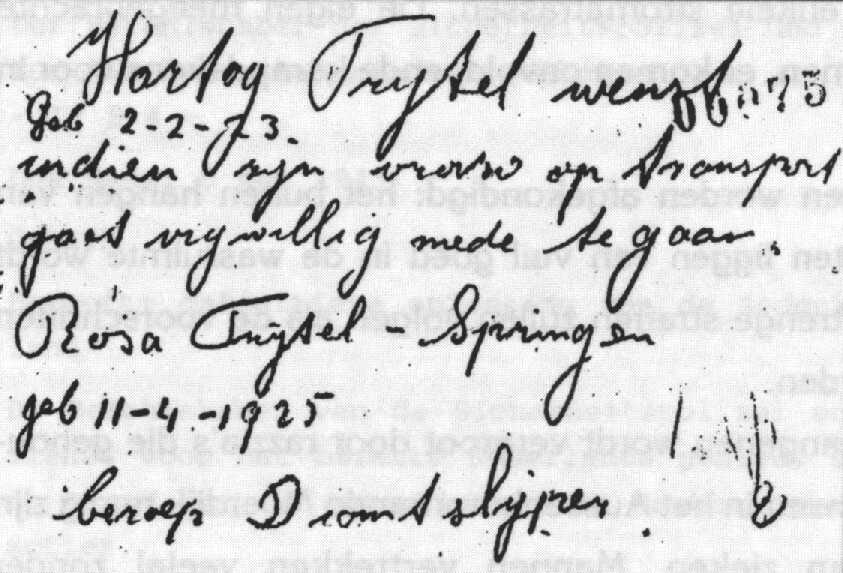 Hartog Trijtel wenst
geb 2-2-23.
06075
indien zijn vrouw op transport
gaat vrijwillig mede te gaan.
Rosa Trijtel - Springer
geb 11-4-1925
beroep Diamtslijper.